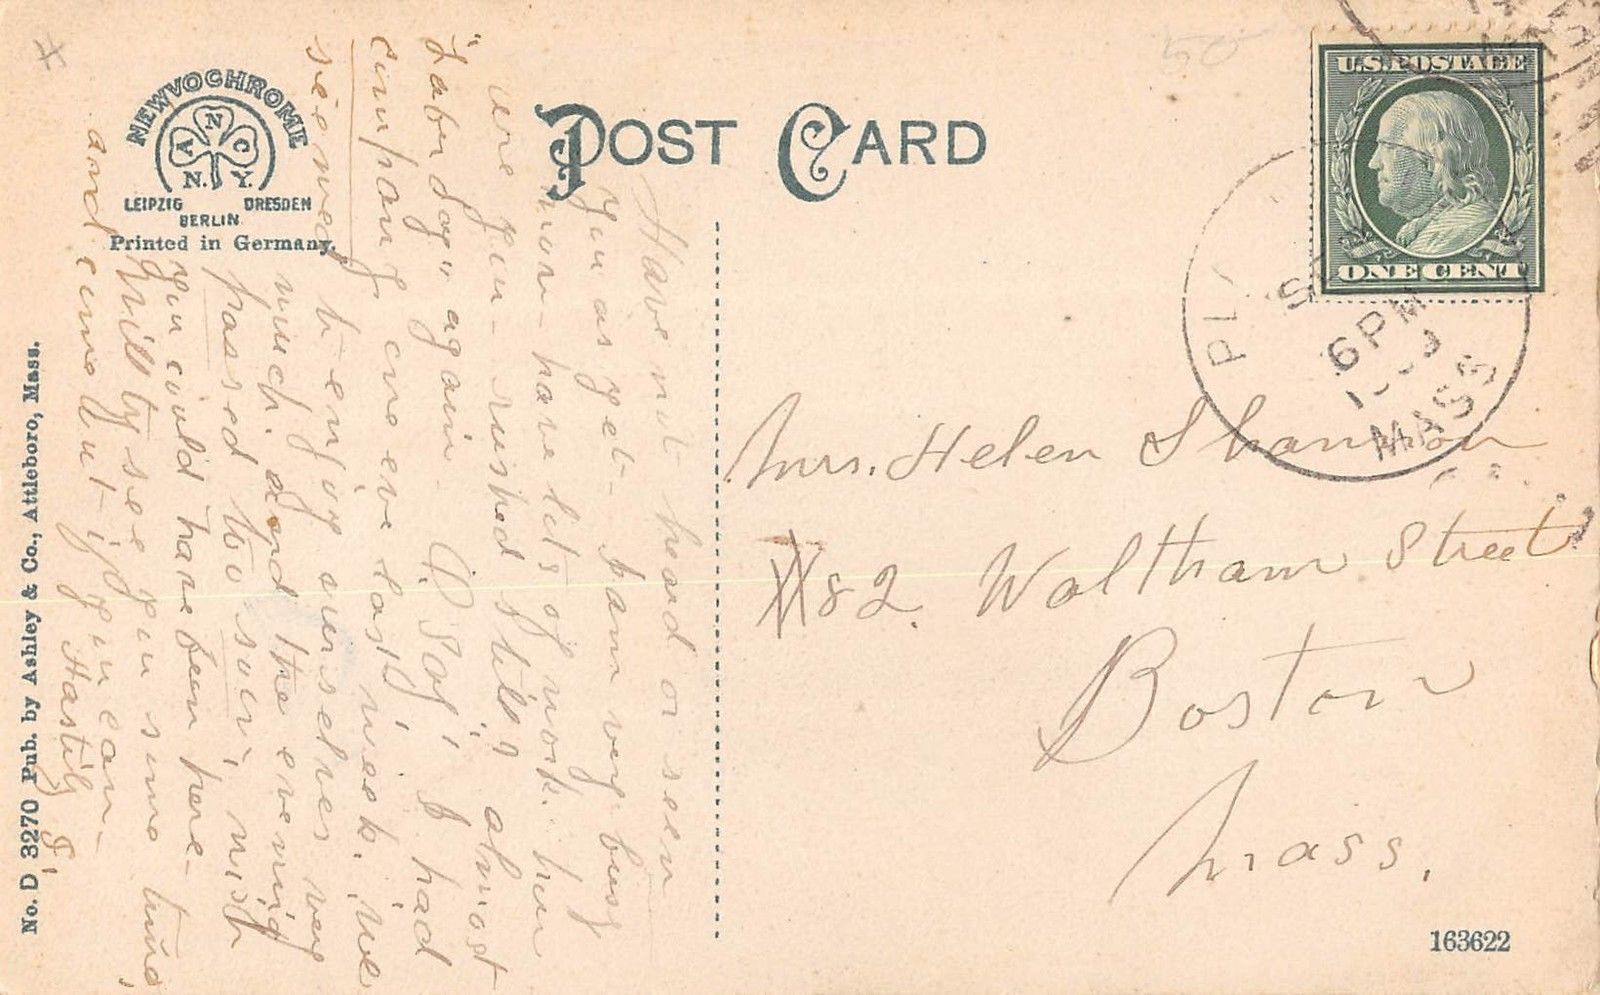 NEWVOCHROME
A N C
N. Y.
LEIPZIG DRESDEN
BERLIN
Printed in Germany.
POST CARD
U.S. POSTAGE
ONE CENT
PL
S
6 PM
MASS
Have not heard or seen
you as yet - I am very busy
now - have lots of work. how
are you - rushed still? almost
"Labor day" again. O Say! I had
company one eve last week. we
seemed to enjoy ourselves very
much. and the evening
passed too soon, wish
you could have been here -
Will try see you some time,
and come out if you can -
Hastily F.
Mrs. Helen Shannon
#82. Waltham Street
Boston
Mass.
No. D 3270 Pub. by Ashley & Co., Attleboro, Mass.
163622